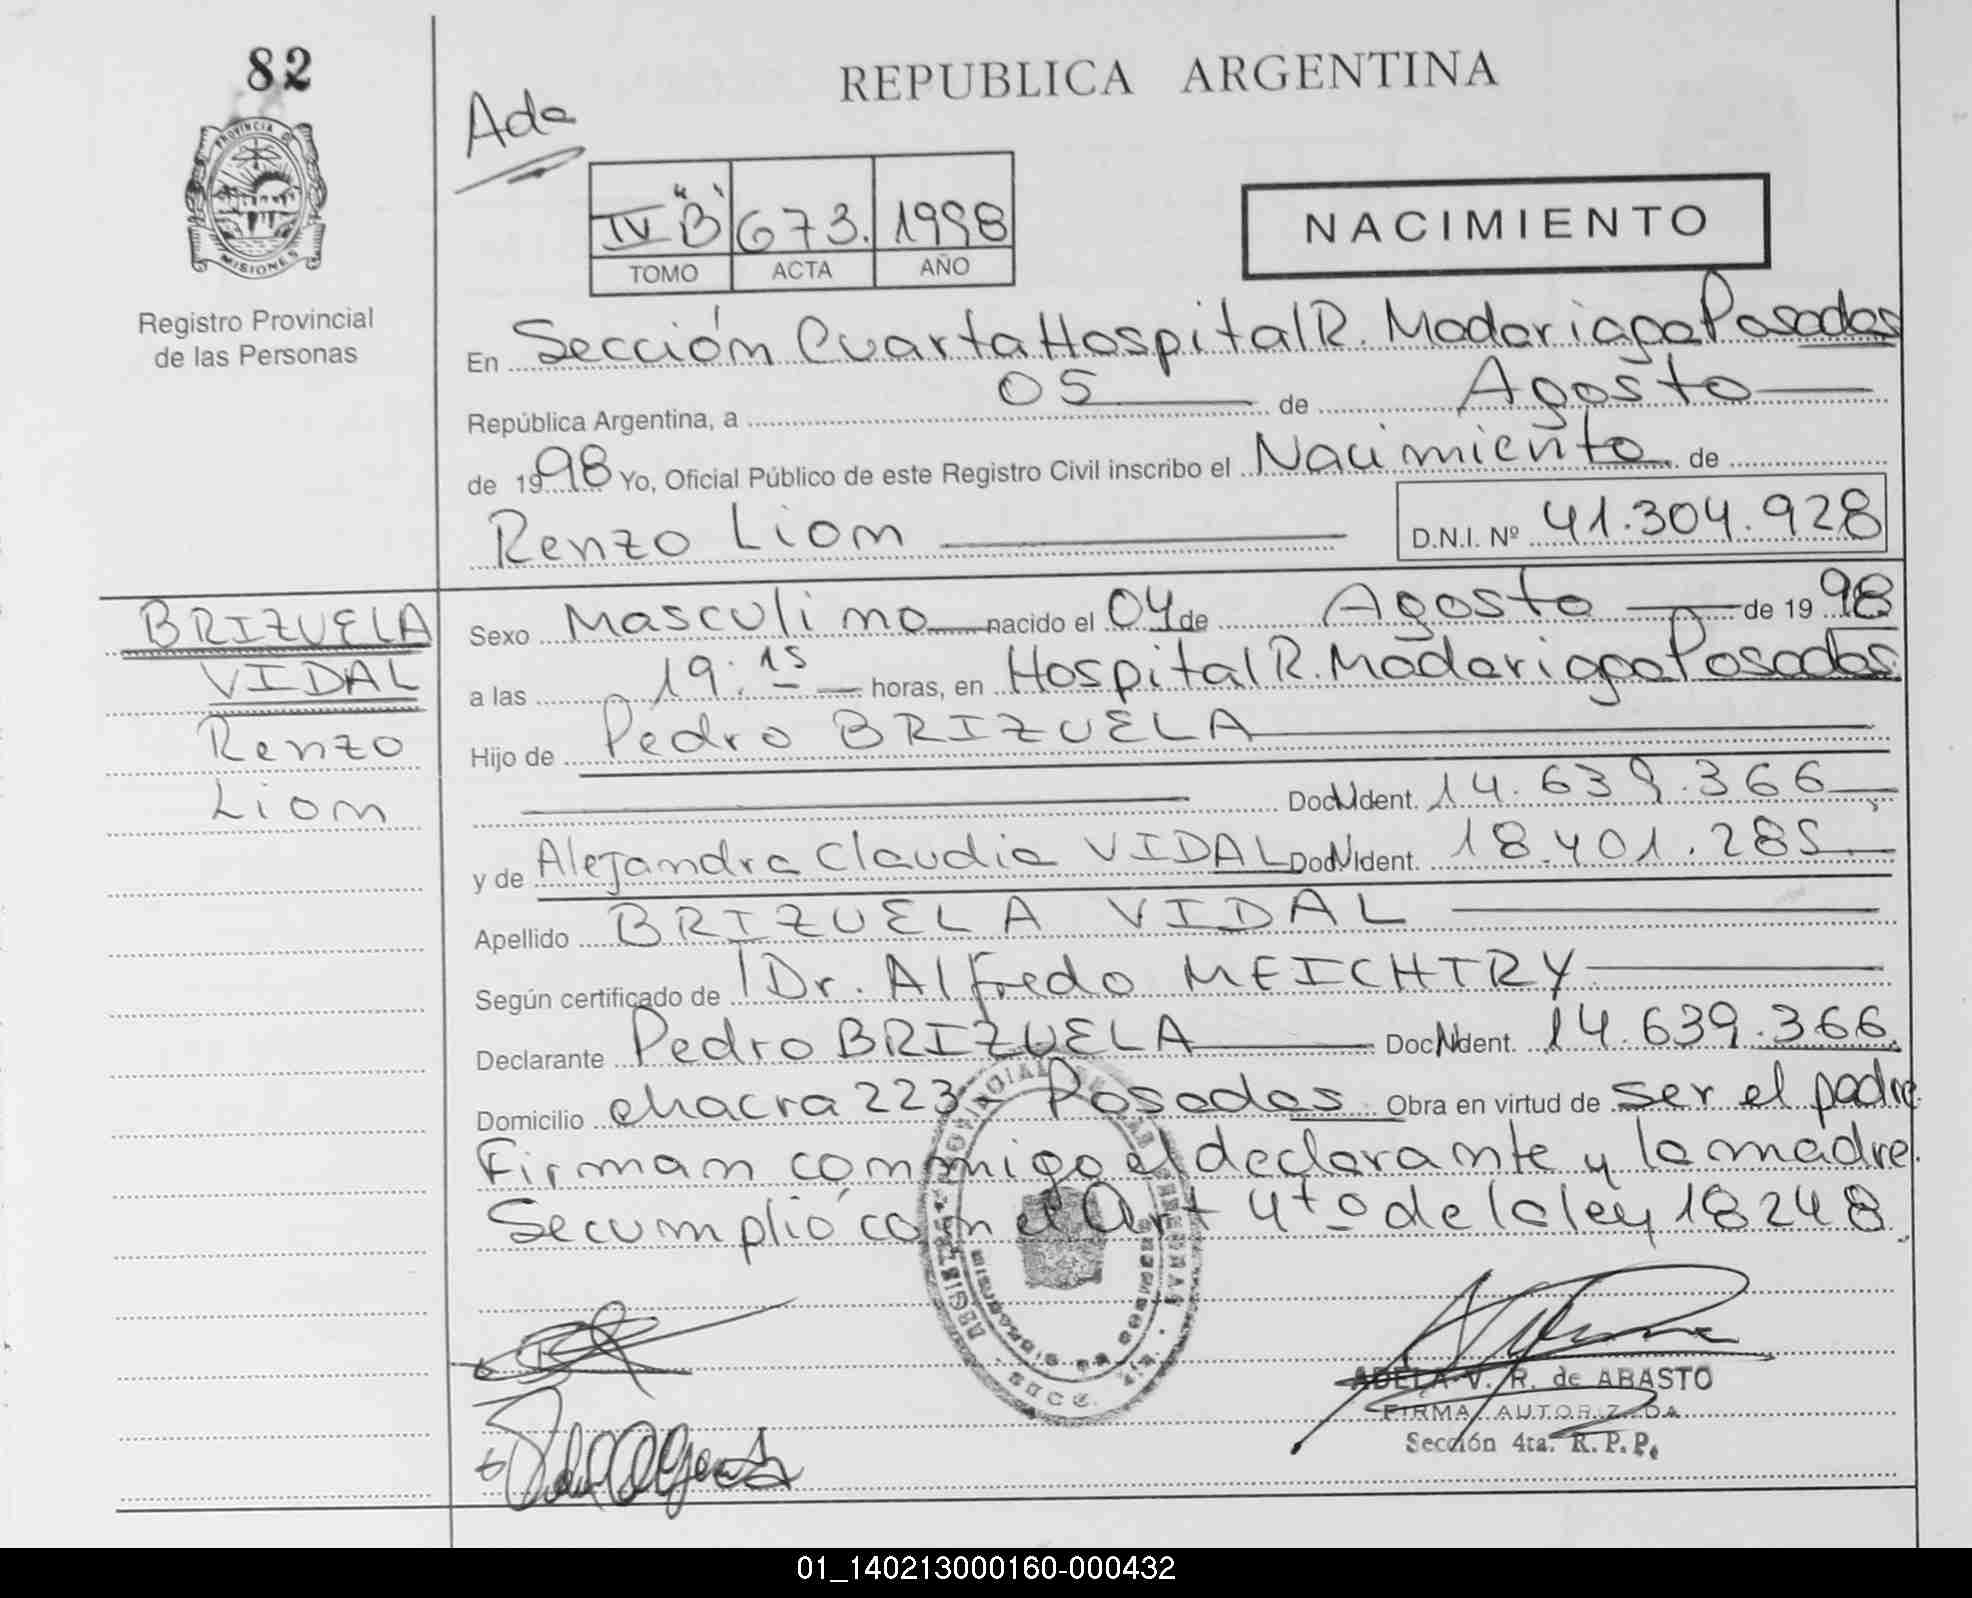 82
REPUBLICA ARGENTINA
Ada
PROVINCIA DE MISIONES
IV "B" 673. 1998
TOMO ACTA AÑO
NACIMIENTO
Registro Provincial
de las Personas
En Sección Cuarta Hospital R. Madariaga Posadas
República Argentina, a 05 de Agosto
de 1998 Yo, Oficial Público de este Registro Civil inscribo el Nacimiento de
Renzo Liom D.N.I. Nº 41.304.928
BRIZUELA
VIDAL
Renzo
Liom
Sexo Masculino nacido el 04 de Agosto de 1998
a las 19:15 horas, en Hospital R. Madariaga Posadas
Hijo de Pedro BRIZUELA
Doc. Ident. 14.639.366
y de Alejandra Claudia VIDAL Doc. Ident. 18.401.285
Apellido BRIZUELA VIDAL
Según certificado de Dr. Alfredo MEICHTRY
Declarante Pedro BRIZUELA Doc. Ident. 14.639.366
Domicilio chacra 223 Posadas Obra en virtud de ser el padre
Firman conmigo el declarante y la madre.
Se cumplió con el Art 4to de la ley 18248
ADELA V. R. de ABASTO
FIRMA AUTORIZADA
Sección 4ta. R. P. P.
01_140213000160-000432